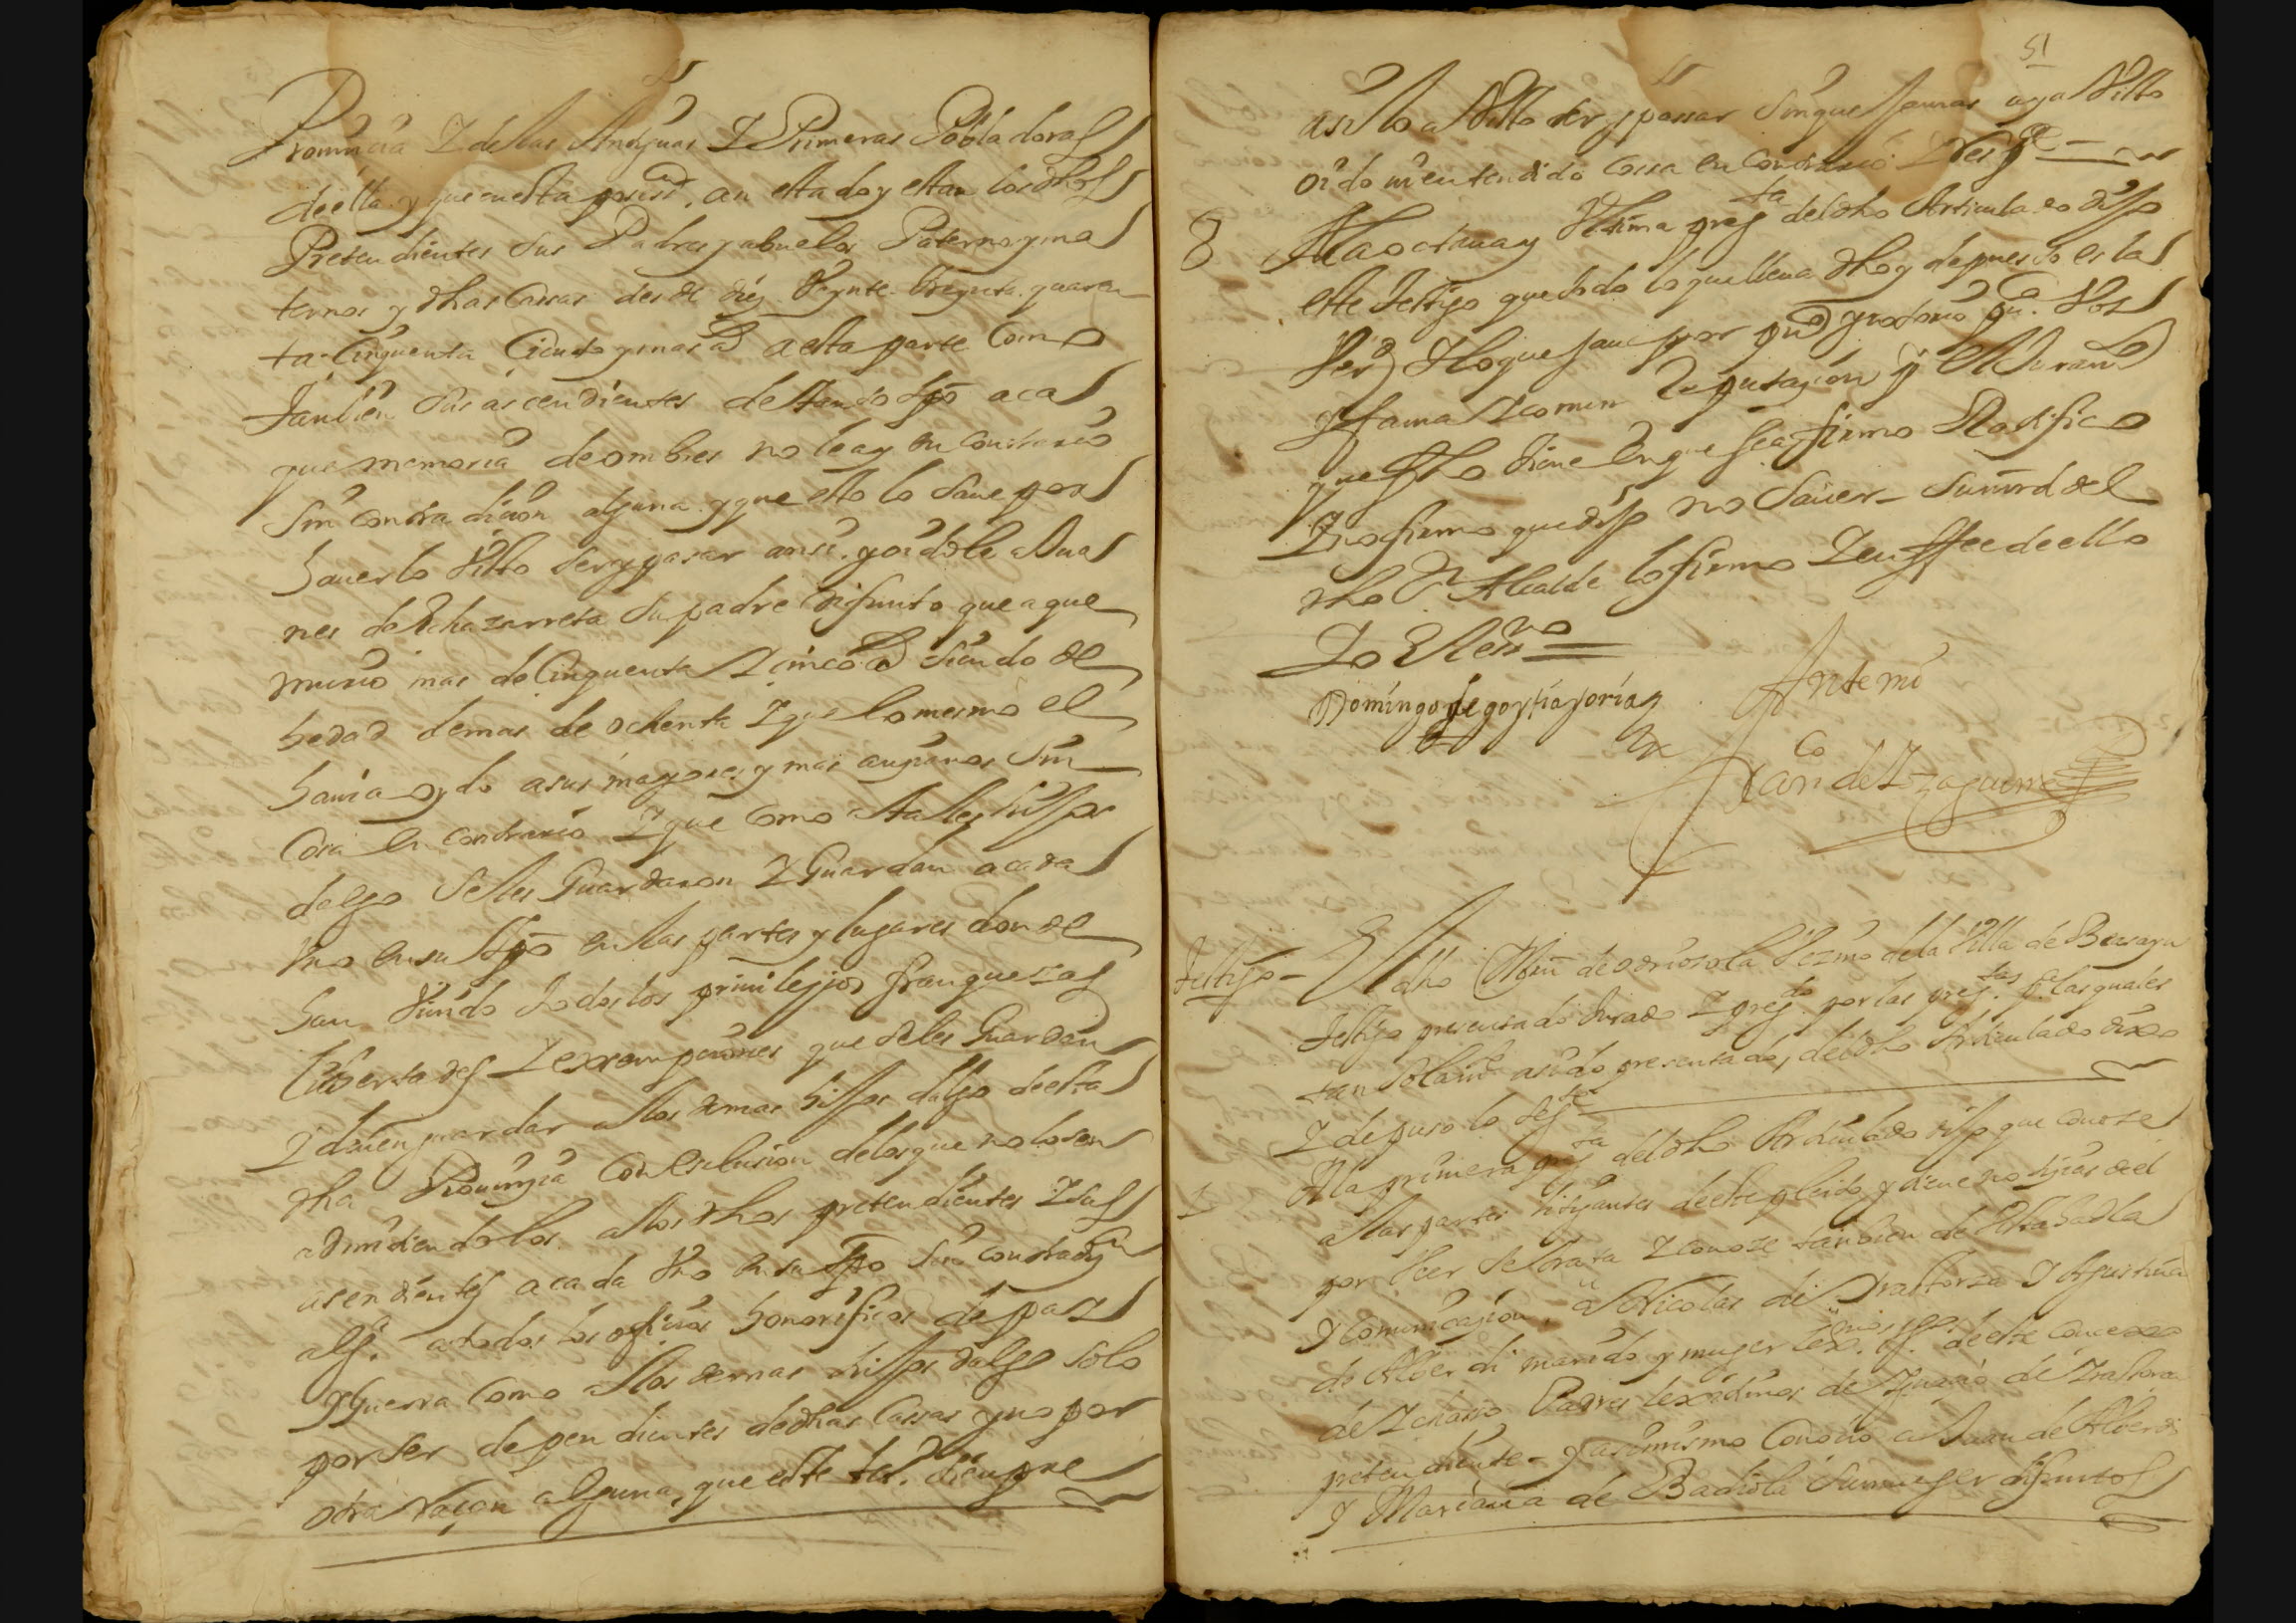 Provinçia Y de las Antiguas Y Primeras Pobladoras
de ella y que en esta posesⁿ. an estado y estan los dhos
Pretendientes sus Padres y abuelos Paternos y ma
ternos y dhas Cassas desde diez Veynte treynta quaren
ta Cinquenta Ciento y mas a^s a esta parte Como
Tanbien sus ascendientes de tanto tpo aca
que memoria de ombres no le ay en Contrario
sin contradicion alguna y que esto lo save por
haverlo Visto ser y pasar ansi. y oidole a Jua
nes de Echazarreta su padre difunto que a que
murio mas de Cinquenta Y cinco a^s siendo de
hedad de mas de ochenta Y que lo mesmo el
havia oydo a sus mayores y mas ançianos sin
Cosa en contrario Y que Como a tales hijos
dalgo se les Guardaron Y Guardan a cada
Vno en su tpo en las partes y lugares donde
han Vivido todos los privilejios franquezas
libertades Y exsempçiones que se les Guardan
Y deven guardar a los demas hijos dalgo de esta
dha Provinçia Con esclusion de los que no lo son
admitiendolos a los dhos pretendientes Y sus
asendientes a cada Vno en su tpo sin contradiçⁿ
alg^a. a todos los ofiçios honorificos de paz
y Guerra Como a los demas hijos dalgo solo
por ser dependientes de dhas Cassas y no por
otra raçon alguna, que este t^o. sienpre
51
asi lo a Visto ser y passar sin que jamas aya Visto
oido ni entendido Cossa en Contrario Y res^de
8 A la octava y Vltima preg^ta del dho Articulado dijo
este testigo que todo lo que lleva dho y depuesto es la
Ver^d Y lo que save por pu^co y notorio pu^ca Voz
y fama Y comun Reputaçion y el Juram^to
que fho tiene en que se afirmo Ratifico
Y no firmo que dijo no Saver - Su mrd del
dho s^r Alcalde lo firmo Y en ffee de ello
Yo el es^no
Domingo de goytia joriaz
Ante mi
Fran^co de Yzaguirre
Testigo - El dho Min de odriosola Vezino de la Villa de Beasayn
testigo presentado Jurado Y preg^do por las preg^tas p^a las quales
tan solam^te a sido presentado, del dho Articulado dixo
Y depuso lo sig^te
1 A la primera preg^ta del dho Articulado dijo que conoze
a las partes litigantes de este pleito y tiene notiçias de el
por leer se trata Y conoze tanbien de Vista habla
Y comunicaçion, a Nicolas de Yrastorza Y Agustina
de Alverdi marido y muger lex^mos Vz^os. de este Conçexo
de Ychasso Padres lexitimos de Ygnaçio de Yrastorza
pretendiente - Y asimismo Conoçio a Juan de Alverdi
Y Mariana de Badiola su muger difuntos